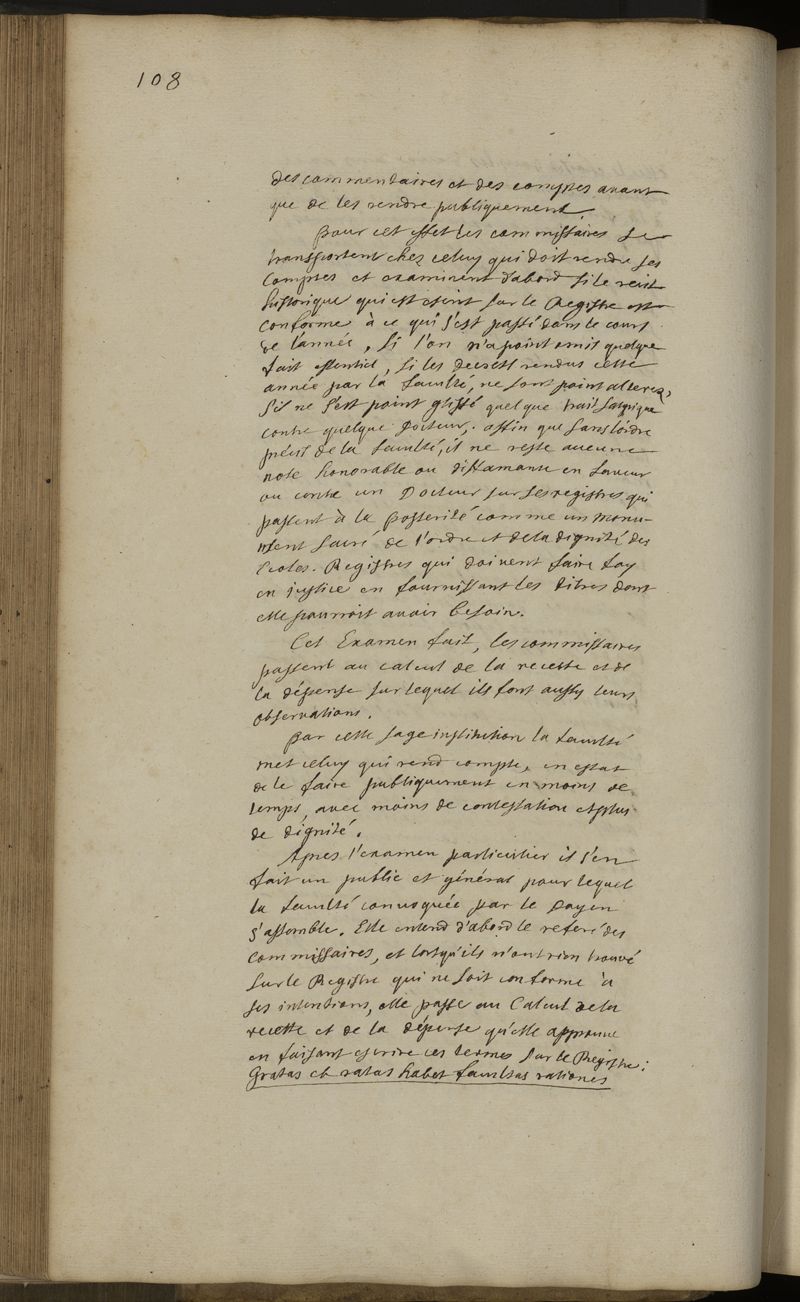 108
des commendaires et des comptes avant
que de les rendre publiquement
pour cet effet les commissaires se
transportent chez celuy qui doit rendre ses
comptes et examinent d'abord si le recit
historique qui est escrit sur le Registre est
conforme à ce qui s'est passé dans le cours
de l'année, si l'on n'a point omis quelque
fait essentiel, si les decrets rendus cette
année par la faculté, ne sont point alterez,
s'il ne s'est point glissé quelque trait satyrique
contre quelque Docteur. affin que sans l'ordre
précis de la faculté, il ne reste aucune
note honorable ou diffamante en faveur
ou contre un Docteur sur ses registres qui
passent à la posterité comme un monu-
ment sacré de l'ordre et de la dignité des
Ecoles. Registres qui doivent faire foy
en justice en fournissant les titres dont
elle pourroit avoir besoin.
Cet Examen fait, les commissaires
passent au calcul de la recette et de
la dépense sur lequel ils font aussy leurs
observations.
par cette sage institution la faculté
met celuy qui rend compte, en estat
de le faire publiquement en moins de
temps, avec moins de contestation et plus
de dignité.
Apres l'examen particulier il s'en
fait un public et général pour lequel
la faculté convoquée par le Doyen
s'assemble. Elle entend d'abord le referé des
Commissaires, et lorsqu'ils n'ont rien trouvé
sur le Registre qui ne soit conforme à
ses intentions, elle passe au Calcul de la
recette et de la dépense qu'elle approuve
en faisant escrire ces termes sur le Registre:
Gratas et ratas habet facultas rationes